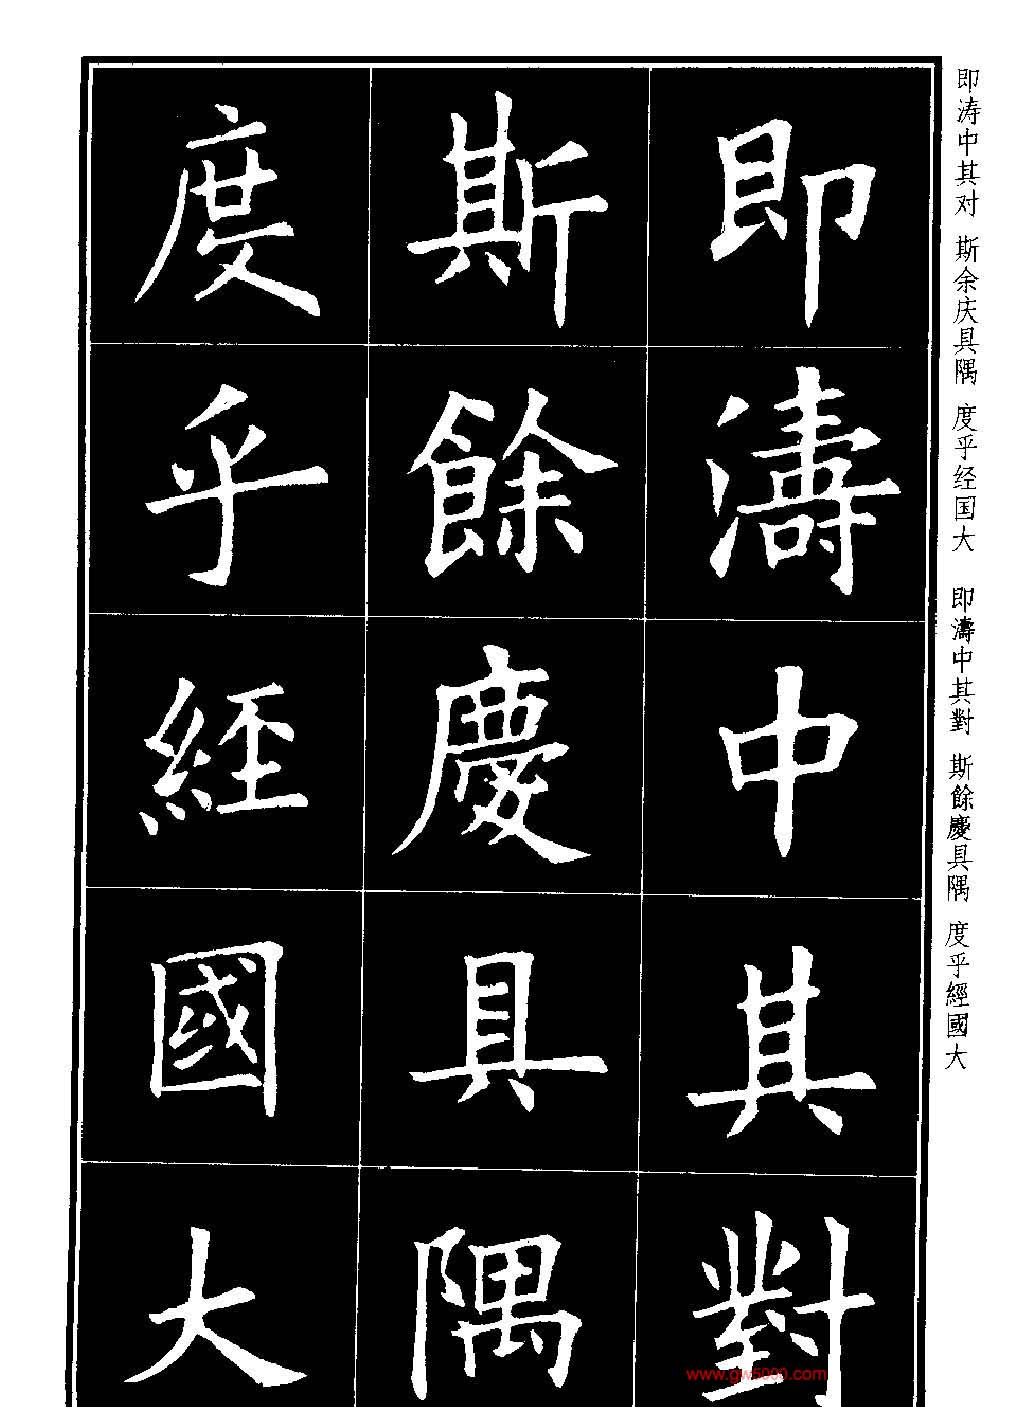 即濤中其對
斯餘慶具隅
度乎經國大
即涛中其对 斯余庆具隅 度乎经国大 即濤中其對 斯餘慶具隅 度乎經國大
www.gw5000.com